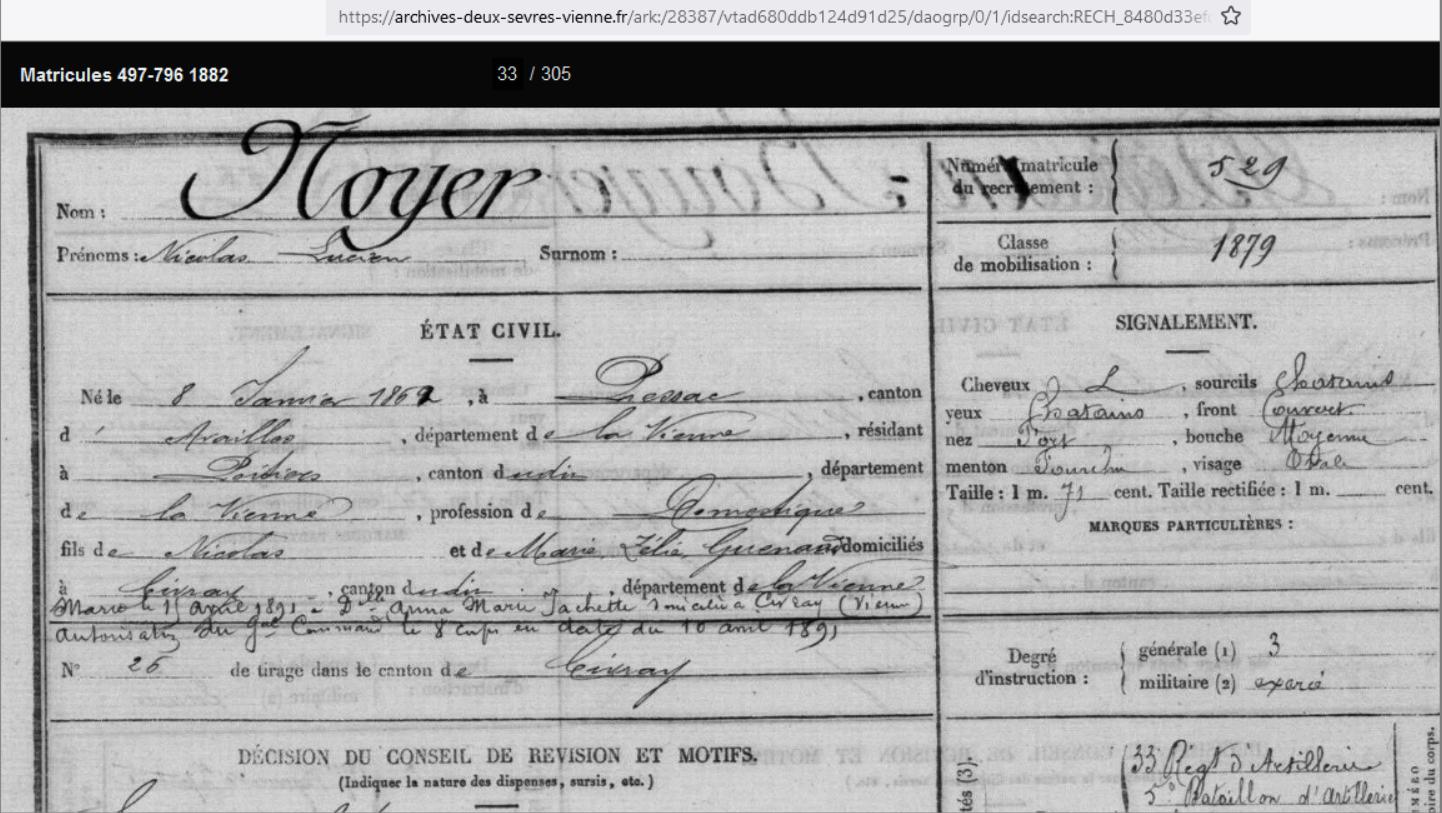 https://archives-deux-sevres-vienne.fr/ark:/28387/vtad680ddb124d91d25/daogrp/0/1/idsearch:RECH_8480d33ef
Matricules 497-796 1882 33 / 305
Nom : Noyer
Prénoms : Nicolas Lucien Surnom :
Numéro matricule du recrutement : 529
Classe de mobilisation : 1879
ÉTAT CIVIL.
Né le 8 Janvier 1862, à Pressac, canton
d' Availles, département de la Vienne, résidant
à Poitiers, canton dudit, département
de la Vienne, profession de Domestique
fils de Nicolas et de Marie Zélie Guenaud domiciliés
à Civray, canton dudit, département de la Vienne
Marié le 15 avril 1891 à Dlle Anna Marie Jachette domiciliée à Civray (Vienne)
autorisation du Gal Command le 8 corps en date du 10 avril 1891
No 26 de tirage dans le canton de Civray
SIGNALEMENT.
Cheveux sourcils Chatains
yeux Chatains, front Couvert
nez Fort, bouche Moyenne
menton Fourchu, visage Ovale
Taille : 1 m. 71 cent. Taille rectifiée : 1 m. cent.
MARQUES PARTICULIÈRES :
Degré d'instruction : générale (1) 3
militaire (2) exercé
DÉCISION DU CONSEIL DE REVISION ET MOTIFS.
(Indiquer la nature des dispenses, sursis, etc.)
33 Regt d'Artillerie
5e Bataillon d'Artillerie
tés (3)
NUMÉRO
oire du corps.